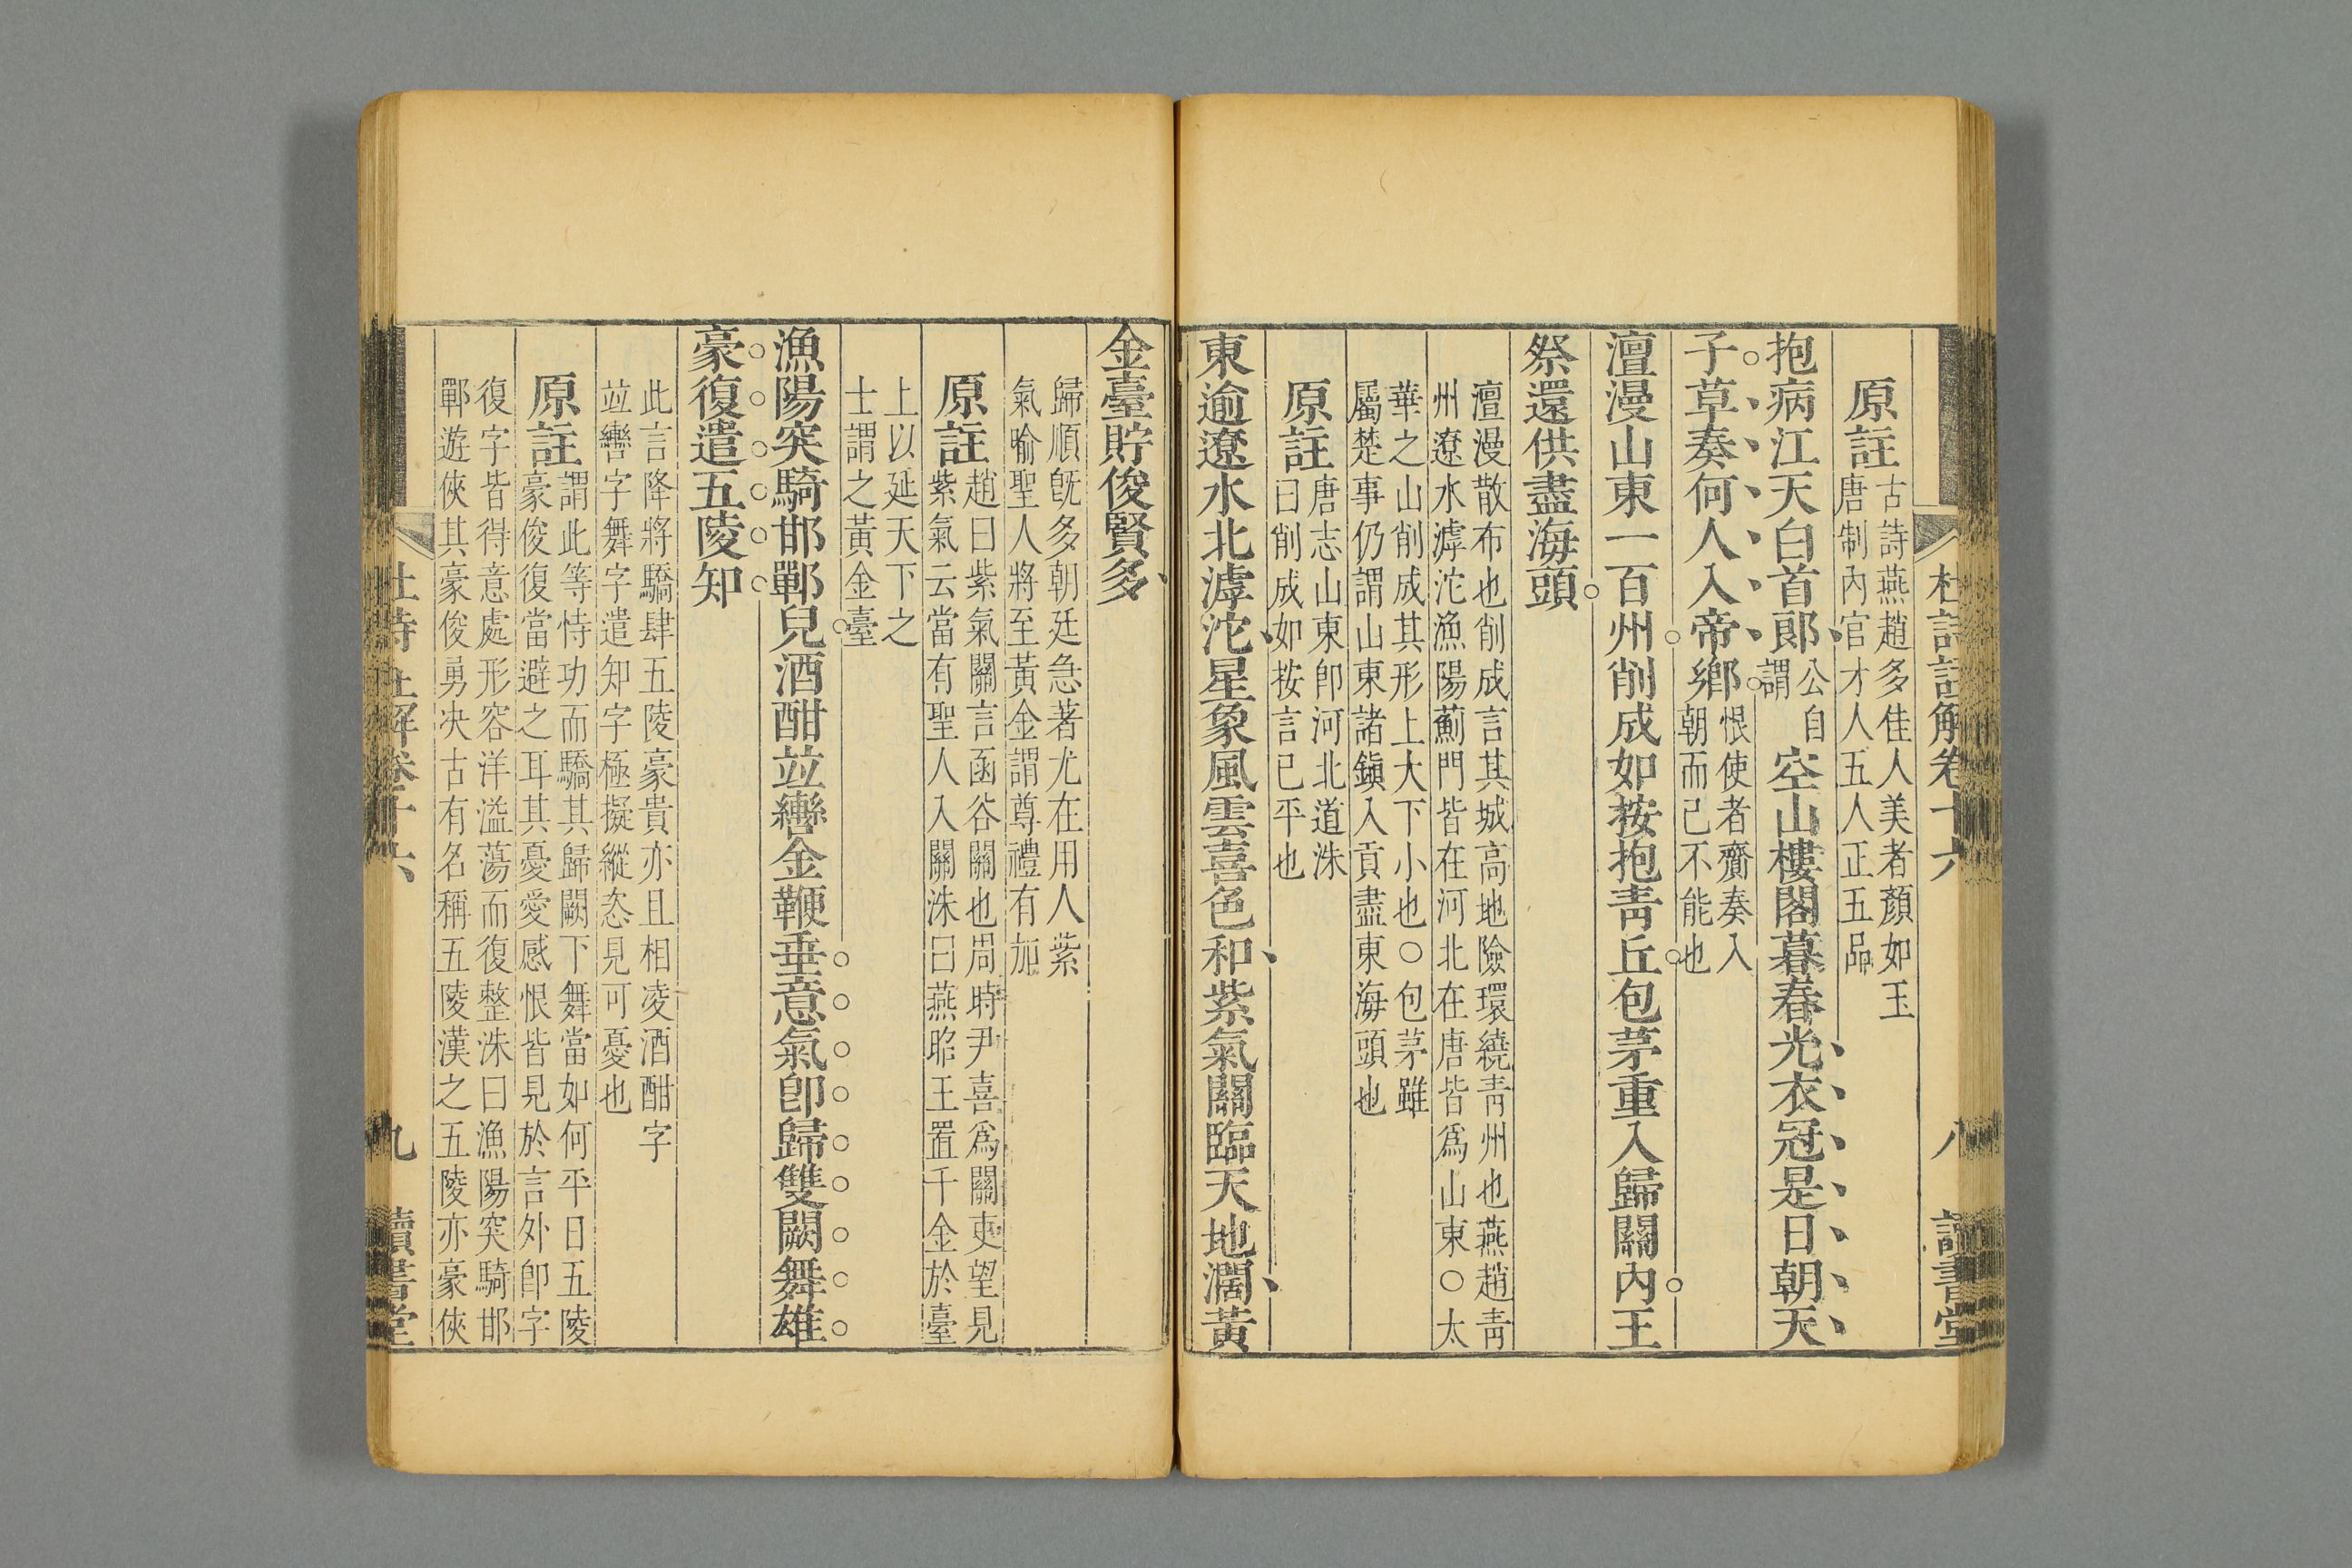 杜詩註解卷十六
八
讀書堂
原註
古詩燕趙多佳人美者顏如玉
唐制內官才人五人正五品
抱病江天白首郎
公自
謂
空山樓閣暮春光衣冠是日朝天
子草奏何人入帝鄉
恨使者齎奏入
朝而己不能也
澶漫山東一百州削成如按抱青丘包茅重入歸關內王
祭還供盡海頭
澶漫散布也削成言其城高地險環繞青州也燕趙青
州遼水滹沱漁陽薊門皆在河北在唐皆爲山東○太
華之山削成其形上大下小也○包茅雖
屬楚事仍謂山東諸鎭入貢盡東海頭也
原註
唐志山東卽河北道洙
曰削成如按言已平也
東逾遼水北滹沱星象風雲喜色和紫氣關臨天地濶黃
金臺貯俊賢多
歸順旣多朝廷急著尤在用人紫
氣喻聖人將至黃金謂尊禮有加
原註
趙曰紫氣關言函谷關也周時尹喜爲關吏望見
紫氣云當有聖人入關洙曰燕昭王置千金於臺
上以延天下之
士謂之黃金臺
漁陽突騎邯鄲兒酒酣竝轡金鞭垂意氣卽歸雙闕舞雄
豪復遣五陵知
此言降將驕肆五陵豪貴亦且相凌酒酣字
竝轡字舞字遣知字極擬縱恣見可憂也
原註
謂此等恃功而驕其歸闕下舞當如何平日五陵
豪俊復當避之耳其憂愛感恨皆見於言外卽字
復字皆得意處形容洋溢蕩而復整洙曰漁陽突騎邯
鄲遊俠其豪俊勇决古有名稱五陵漢之五陵亦豪俠
杜詩註解卷十六
九
讀書堂